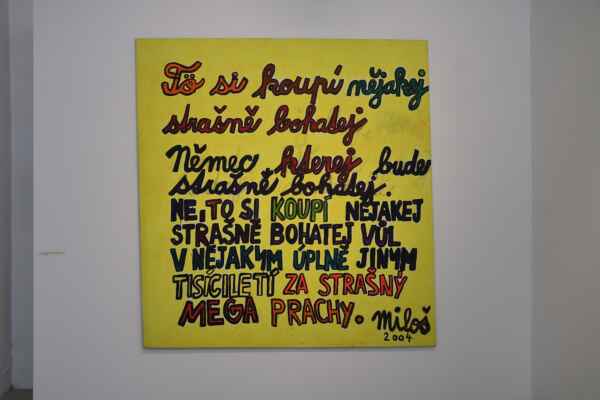 Tö si koupí nějakej
strašně bohatej
Němec kterej bude
strašně bohatej.
NE, TO SI KOUPÍ NĚJAKEJ
STRAŠNĚ BOHATEJ VŮL
V NĚJAKYM ÚPLNĚ JINYM
TISÍCILETÍ ZA STRAŠNÝ
MEGA PRACHY.
Miloš
2004